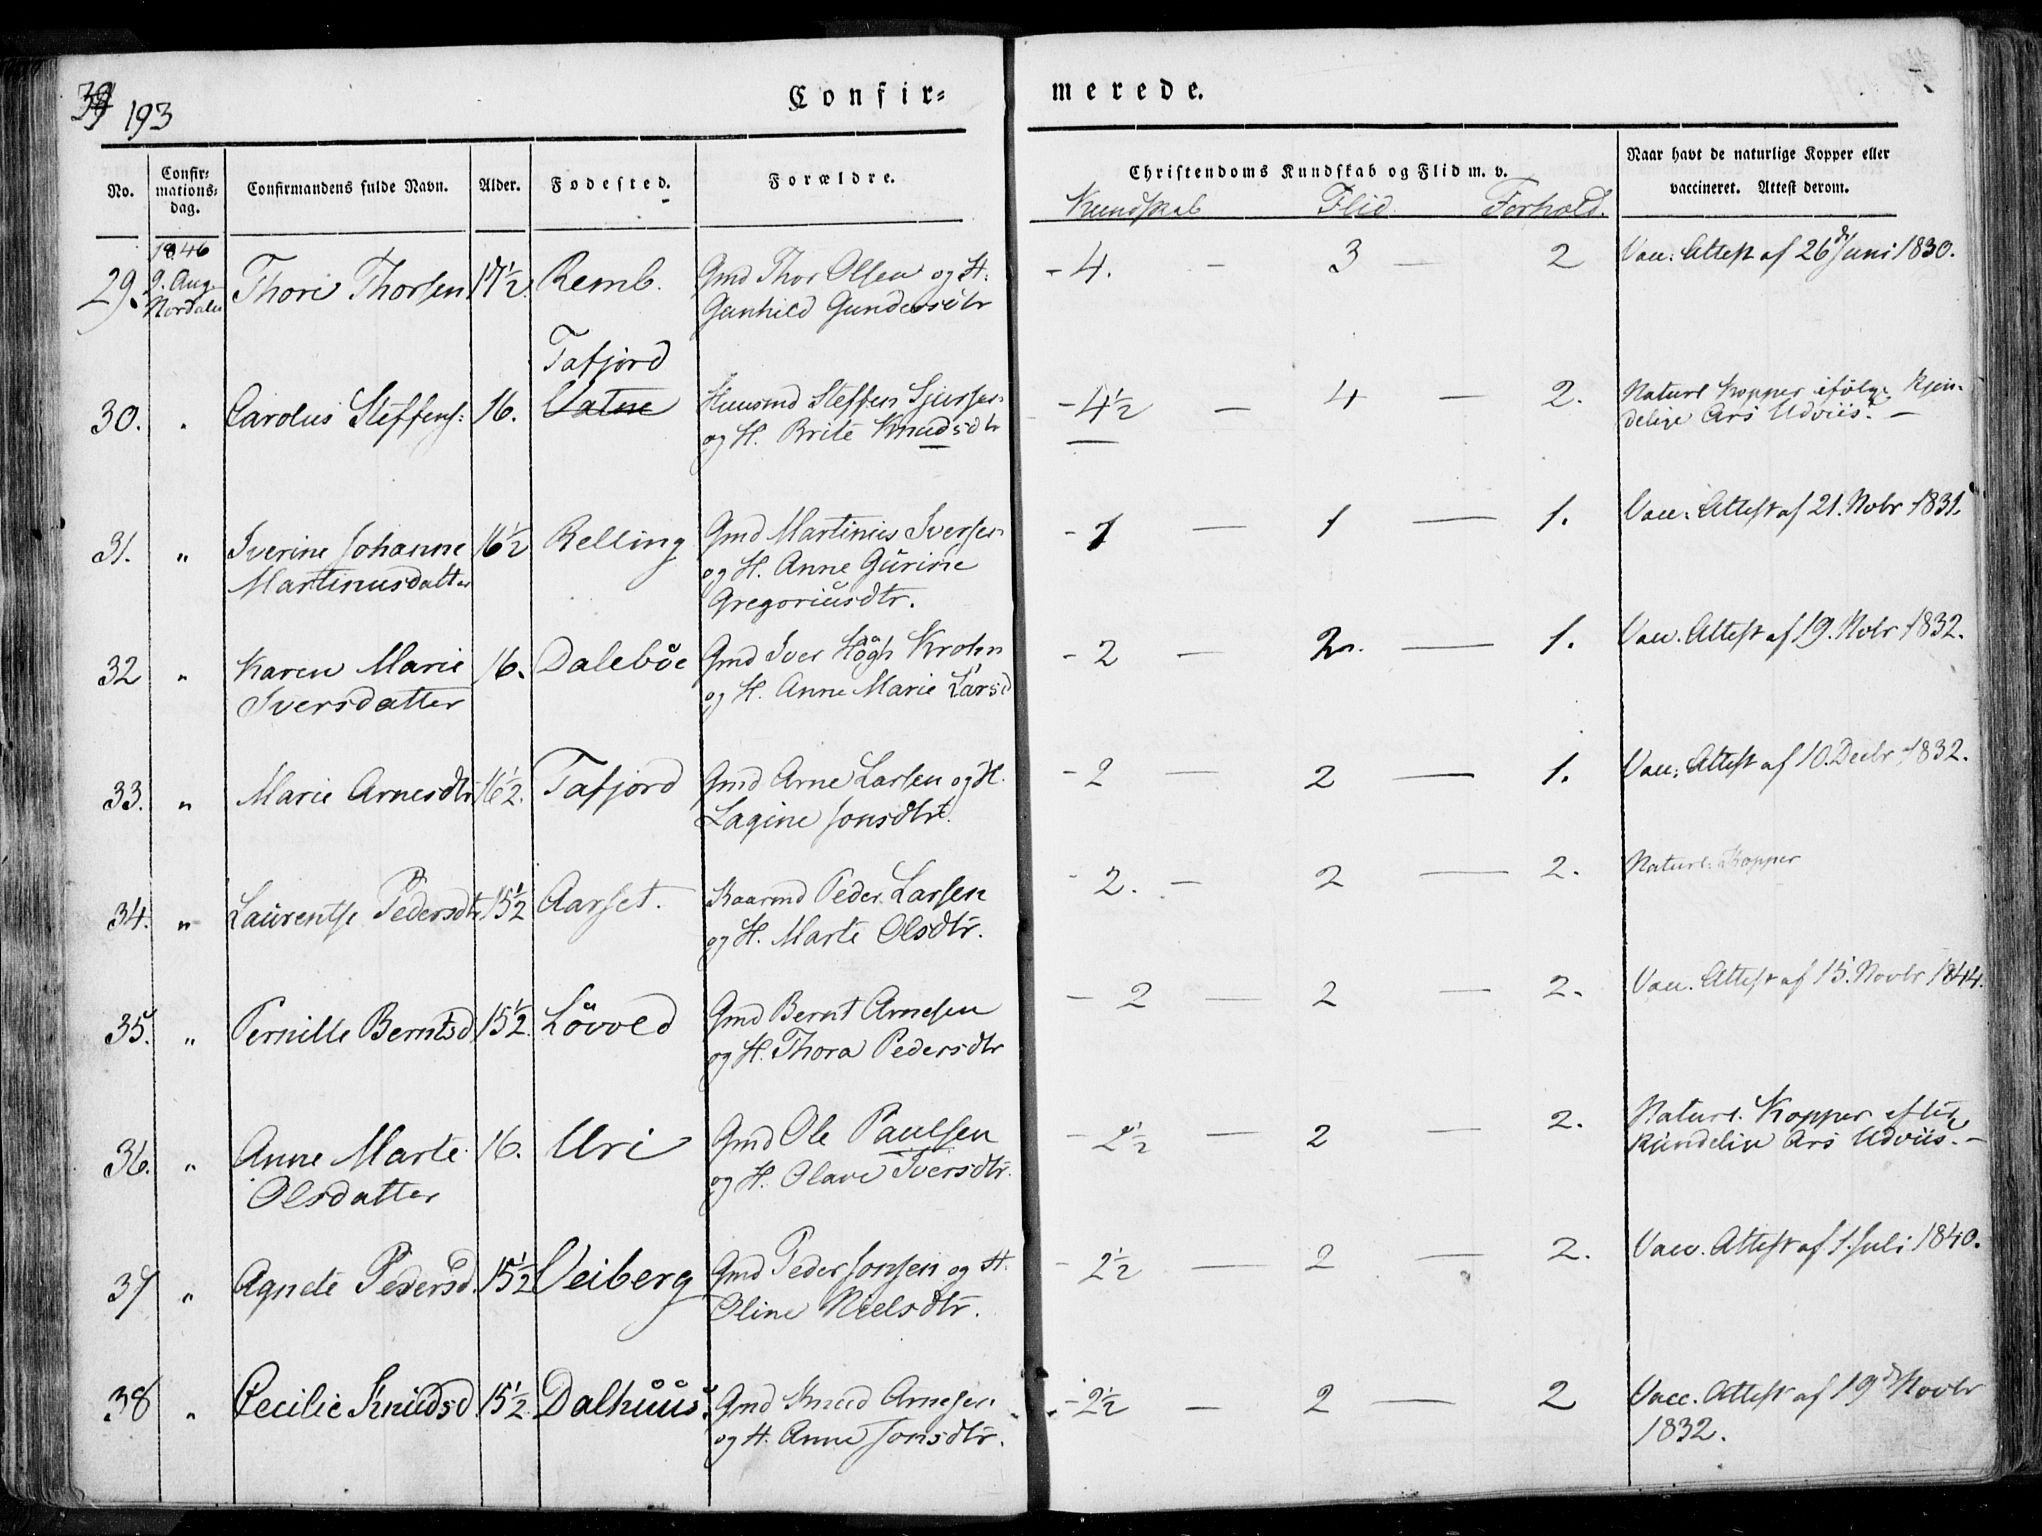 193
Confir= merede.
No. Confir= mations= dag. Confirmandens fulde Navn. Alder. Fødested. Forældre. Christendoms Kundskab og Flid m. v. Naar havt de naturlige Kopper eller vaccineret. Attest derom.
Kundskab Flid Forhold.
1846
29. 2. Aug. Thore Thorsen 17½. Remb. Gmd Thor Olsen og H. - 4. - 3 - 2 Vac. Attest af 26 d Juni 1830.
Nordalen Gunhild Gundersdtr
Tafjord
30. " Carolus Steffens: 16. Vatne Huusmd Steffen Sjurssen - 4½ - 4 - 2. Naturl Kopper ifølge Kjen-
og H. Brite Knudsdtr delige Ars Udviis. -
31. " Iverine Johanne 16½ Relling Gmd Martinus Iversen - 1 - 1 - 1. Vacc. Attest af 21. Nobr 1831.
Martinusdatter og H. Anne Gurine
Gregoriusdtr.
32 " Karen Marie 16. Daleböe Gmd Iver Högh Krohn - 2 - 2. - 1. Vac. Attest af 19. Nobr 1832.
Iversdatter og H. Anne Marie Larsd
33. " Marie Arnesdtr 16½. Tafjord Gmd Arne Larsen og H. - 2 - 2 - 1. Vac. Attest af 10. Decbr 1832.
Lagine Jonsdtr.
34. " Laurentse Pedersdtr 15½ Aarset. Kaarmd Peder Larsen - 2. - 2 - 2. Naturl. Kopper
og H. Marte Olsdtr.
35. " Pernille Berntsd 15½. Lövold Gmd Bernt Arnesen - 2 - 2 - 2. Vac. Attest af 15. Novbr 1844.
og H. Thora Pedersdtr
36. " Anne Marte 16. Uri Gmd Ole Paulsen - 2½ - 2 - 2. Naturl. Kopper efter
Olsdatter og H. Olave Iversdtr. Kiendelin Ars Udviis. -
37 " Agnete Pedersd. 15½ Veiberg Gmd Peder Jonsen og H. - 2½ - 2 - 2. Vacc. Attest af 1. Juli 1840.
Oline Nielsdtr.
38 " Cecilie Knudsd 15½. Dalhuus. Gmd Knud Arnesen - 2½ - 2 - 2 Vacc. Attest af 19 d Novbr
og H. Anne Jonsdtr. 1832.